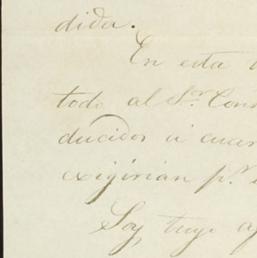 dida.
En esta
todo al Sr. Con
ducidos á
exigirian pr.
Soy, tuyo